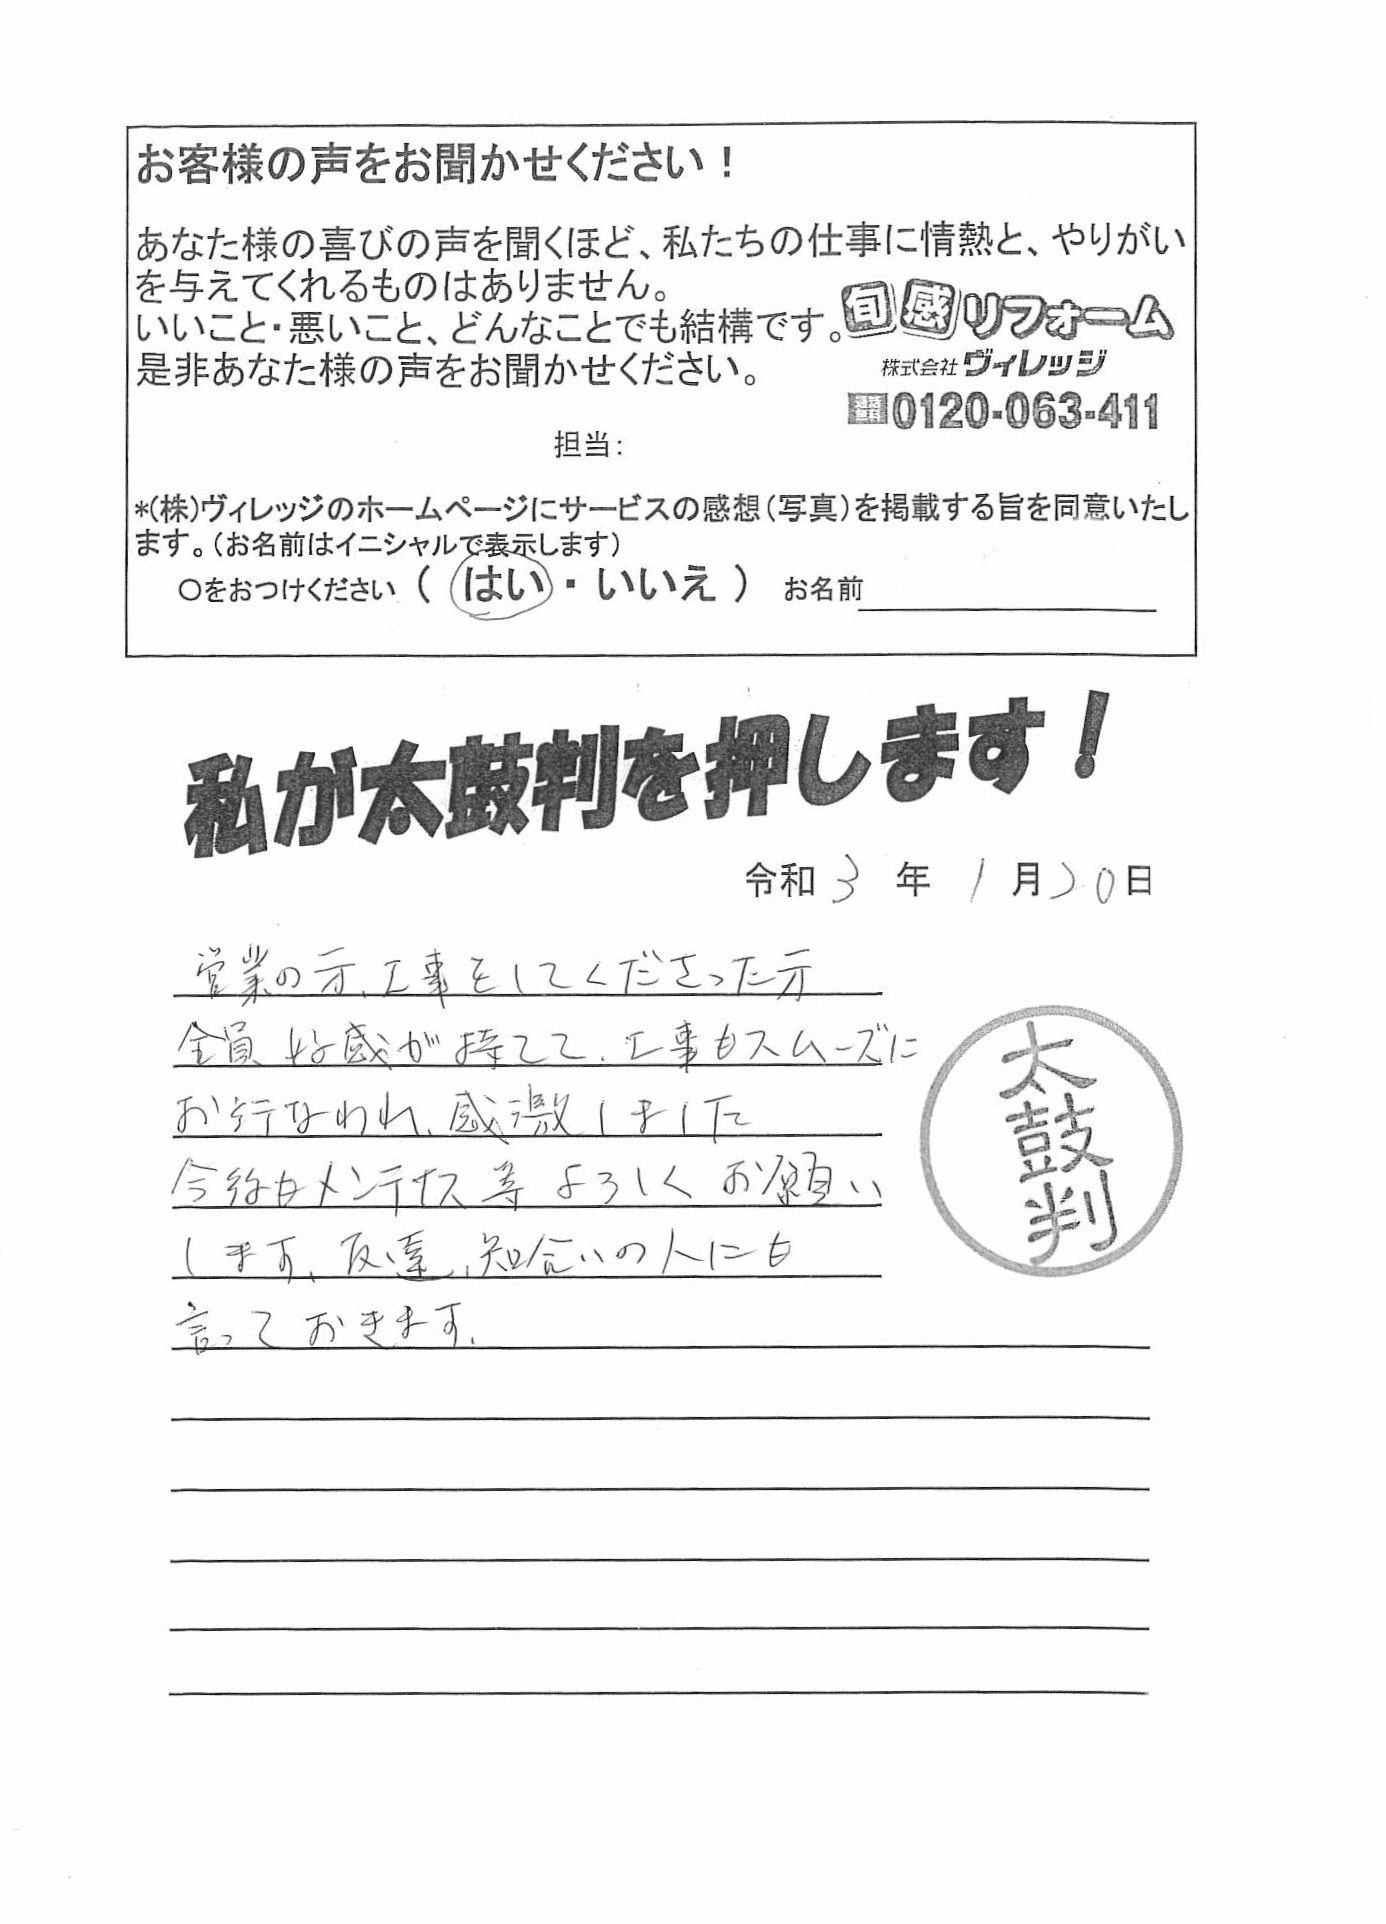 お客様の声をお聞かせください！
あなた様の喜びの声を聞くほど、私たちの仕事に情熱と、やりがい
を与えてくれるものはありません。
いいこと・悪いこと、どんなことでも結構です。
是非あなた様の声をお聞かせください。
旬感リフォーム
株式会社ヴィレッジ
通話無料0120-063-411
担当：
*（株）ヴィレッジのホームページにサービスの感想（写真）を掲載する旨を同意いたし
ます。（お名前はイニシャルで表示します）
〇をおつけください（ はい・いいえ ） お名前
私が太鼓判を押します！
令和 3 年 1 月 20 日
営業の方、工事をしてくださった方
全員好感が持てて、工事もスムーズに
お行なわれ、感激しました
今後もメンテナス等よろしくお願い
します、友達、知合いの人にも
言っておきます。
太鼓判